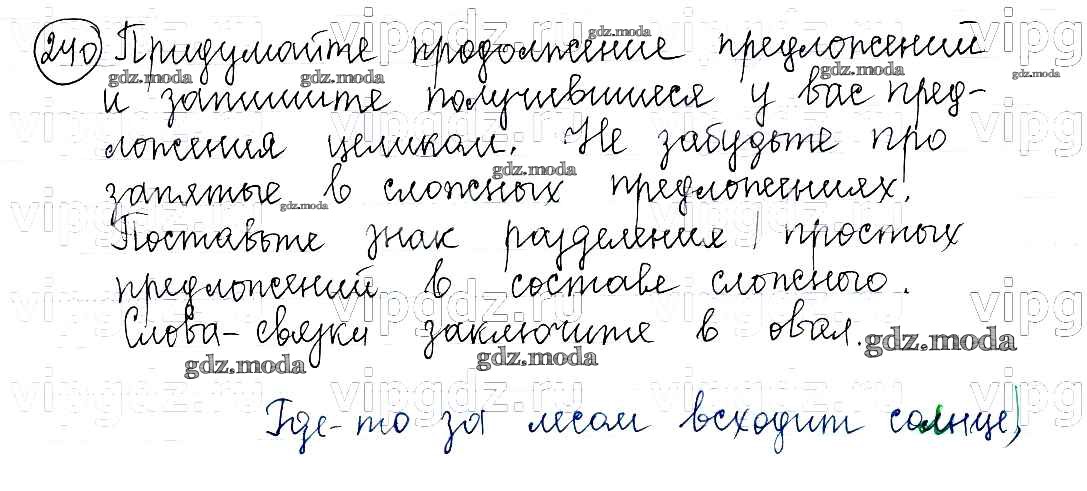 240 Придумайте продолжение предложений
и запишите получившиеся у вас пред-
ложения целиком. Не забудьте про
запятые в сложных предложениях.
Поставьте знак разделения | простых
предложений в составе сложного.
Слова-связки заключите в овал.
Где-то за лесом всходит солнце,